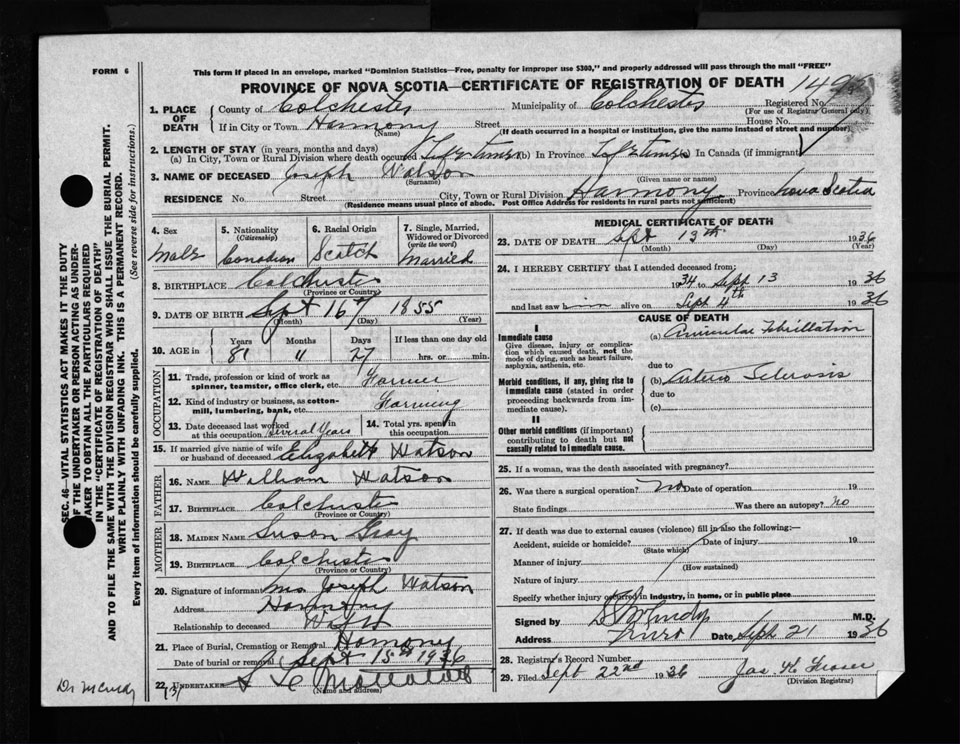 FORM 6
This form if placed in an envelope, marked "Dominion Statistics—Free, penalty for improper use $300," and properly addressed will pass through the mail "FREE"
PROVINCE OF NOVA SCOTIA—CERTIFICATE OF REGISTRATION OF DEATH
1. PLACE OF DEATH
County of Colchester Municipality of Colchester Registered No.
(For use of Registrar General only)
If in City or Town Harmony Street House No.
(Name) (If death occurred in a hospital or institution, give the name instead of street and number)
2. LENGTH OF STAY (in years, months and days)
(a) In City, Town or Rural Division where death occurred Lifetime (b) In Province Lifetime (c) In Canada (if immigrant)
3. NAME OF DECEASED Joseph Watson
(Surname) (Given name or names)
RESIDENCE No. Street City, Town or Rural Division Harmony Province Nova Scotia
(Residence means usual place of abode. Post Office Address for residents in rural parts not sufficient)
4. Sex
Male
5. Nationality
(Citizenship)
Canadian
6. Racial Origin
Scotch
7. Single, Married, Widowed or Divorced
(write the word)
Married
8. BIRTHPLACE Colchester
(Province or Country)
9. DATE OF BIRTH Sept 16th 1855
(Month) (Day) (Year)
10. AGE in
Years Months Days If less than one day old
81 11 27 hrs. or min.
OCCUPATION
11. Trade, profession or kind of work as spinner, teamster, office clerk, etc. Farmer
12. Kind of industry or business, as cotton-mill, lumbering, bank, etc. Farming
13. Date deceased last worked at this occupation Several Years
14. Total yrs. spent in this occupation
15. If married give name of wife or husband of deceased Elizabeth Watson
FATHER
16. NAME William Watson
17. BIRTHPLACE Colchester
(Province or Country)
MOTHER
18. MAIDEN NAME Susan Gray
19. BIRTHPLACE Colchester
(Province or Country)
20. Signature of informant Mrs Joseph Watson
Address Harmony
Relationship to deceased Wife
21. Place of Burial, Cremation or Removal Harmony
Date of burial or removal Sept 15th 1936
22. UNDERTAKER
(Name and Address)
MEDICAL CERTIFICATE OF DEATH
23. DATE OF DEATH Sept 13th 1936
(Month) (Day) (Year)
24. I HEREBY CERTIFY that I attended deceased from:
1934 to Sept 13 1936
and last saw him alive on Sept 4th 1936
CAUSE OF DEATH
I
Immediate cause
Give disease, injury or complication which caused death, not the mode of dying, such as heart failure, asphyxia, asthenia, etc.
(a) Auricular Fibrillation
due to
Morbid conditions, if any, giving rise to immediate cause (stated in order proceeding backwards from immediate cause).
(b) Arterio Sclerosis
due to
(c)
II
Other morbid conditions (if important) contributing to death but not causally related to immediate cause.
25. If a woman, was the death associated with pregnancy?
26. Was there a surgical operation? No Date of operation 19
State findings Was there an autopsy? No
27. If death was due to external causes (violence) fill in also the following:—
Accident, suicide or homicide? Date of injury 19
(State which)
Manner of injury
(How sustained)
Nature of injury
Specify whether injury occurred in industry, in home, or in public place
Signed by M.D.
Address Truro Date Sept 21 1936
28. Registrar's Record Number
29. Filed Sept 22nd 1936
(Division Registrar)
SEC. 46—VITAL STATISTICS ACT MAKES IT THE DUTY
OF THE UNDERTAKER OR PERSON ACTING AS UNDER-
TAKER TO OBTAIN ALL THE PARTICULARS REQUIRED
IN THE "CERTIFICATE OF REGISTRATION OF DEATH"
AND TO FILE THE SAME WITH THE DIVISION REGISTRAR WHO SHALL ISSUE THE BURIAL PERMIT.
WRITE PLAINLY WITH UNFADING INK. THIS IS A PERMANENT RECORD.
Every item of information should be carefully supplied. (See reverse side for instructions.)